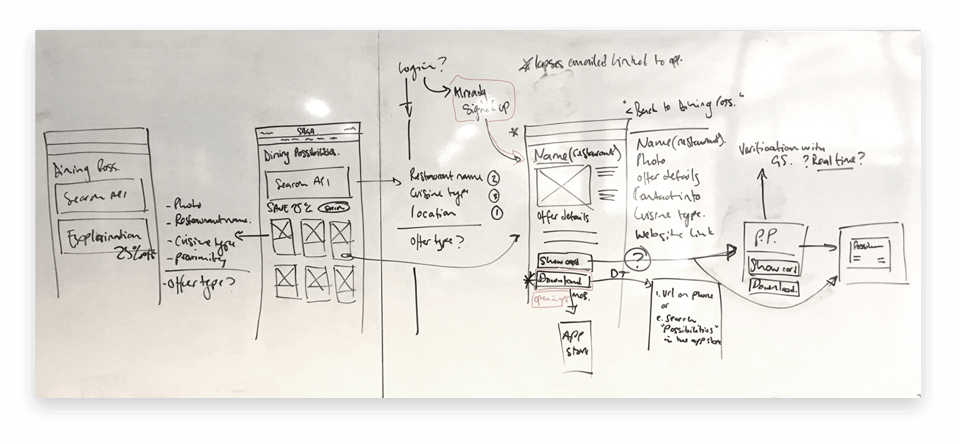 Dining Poss.
Search API
Explanation
25% off
- Photo
- Restaurant name.
- Cuisine type
- Proximity
- Offer type?
SAGA
Dining Possibilities.
Search API
SAVE 25%
Login?
Already
Signed up
Restaurant name ②
Cuisine type ③
Location ①
Offer type?
* lapses emailed linked to app.
*
Name (restaurant)
Offer details
Show card
* Download
open in app
MOB.
App
store
DT
?
"< Back to Dining Poss."
Name (restaurant).
Photo
Offer details
Contact info
Cuisine type.
Website link
1. Url on phone
or
2. Search
"Possibilities"
in the app store
Verification with
GS. ? Real time?
P.P.
Show card
Download.